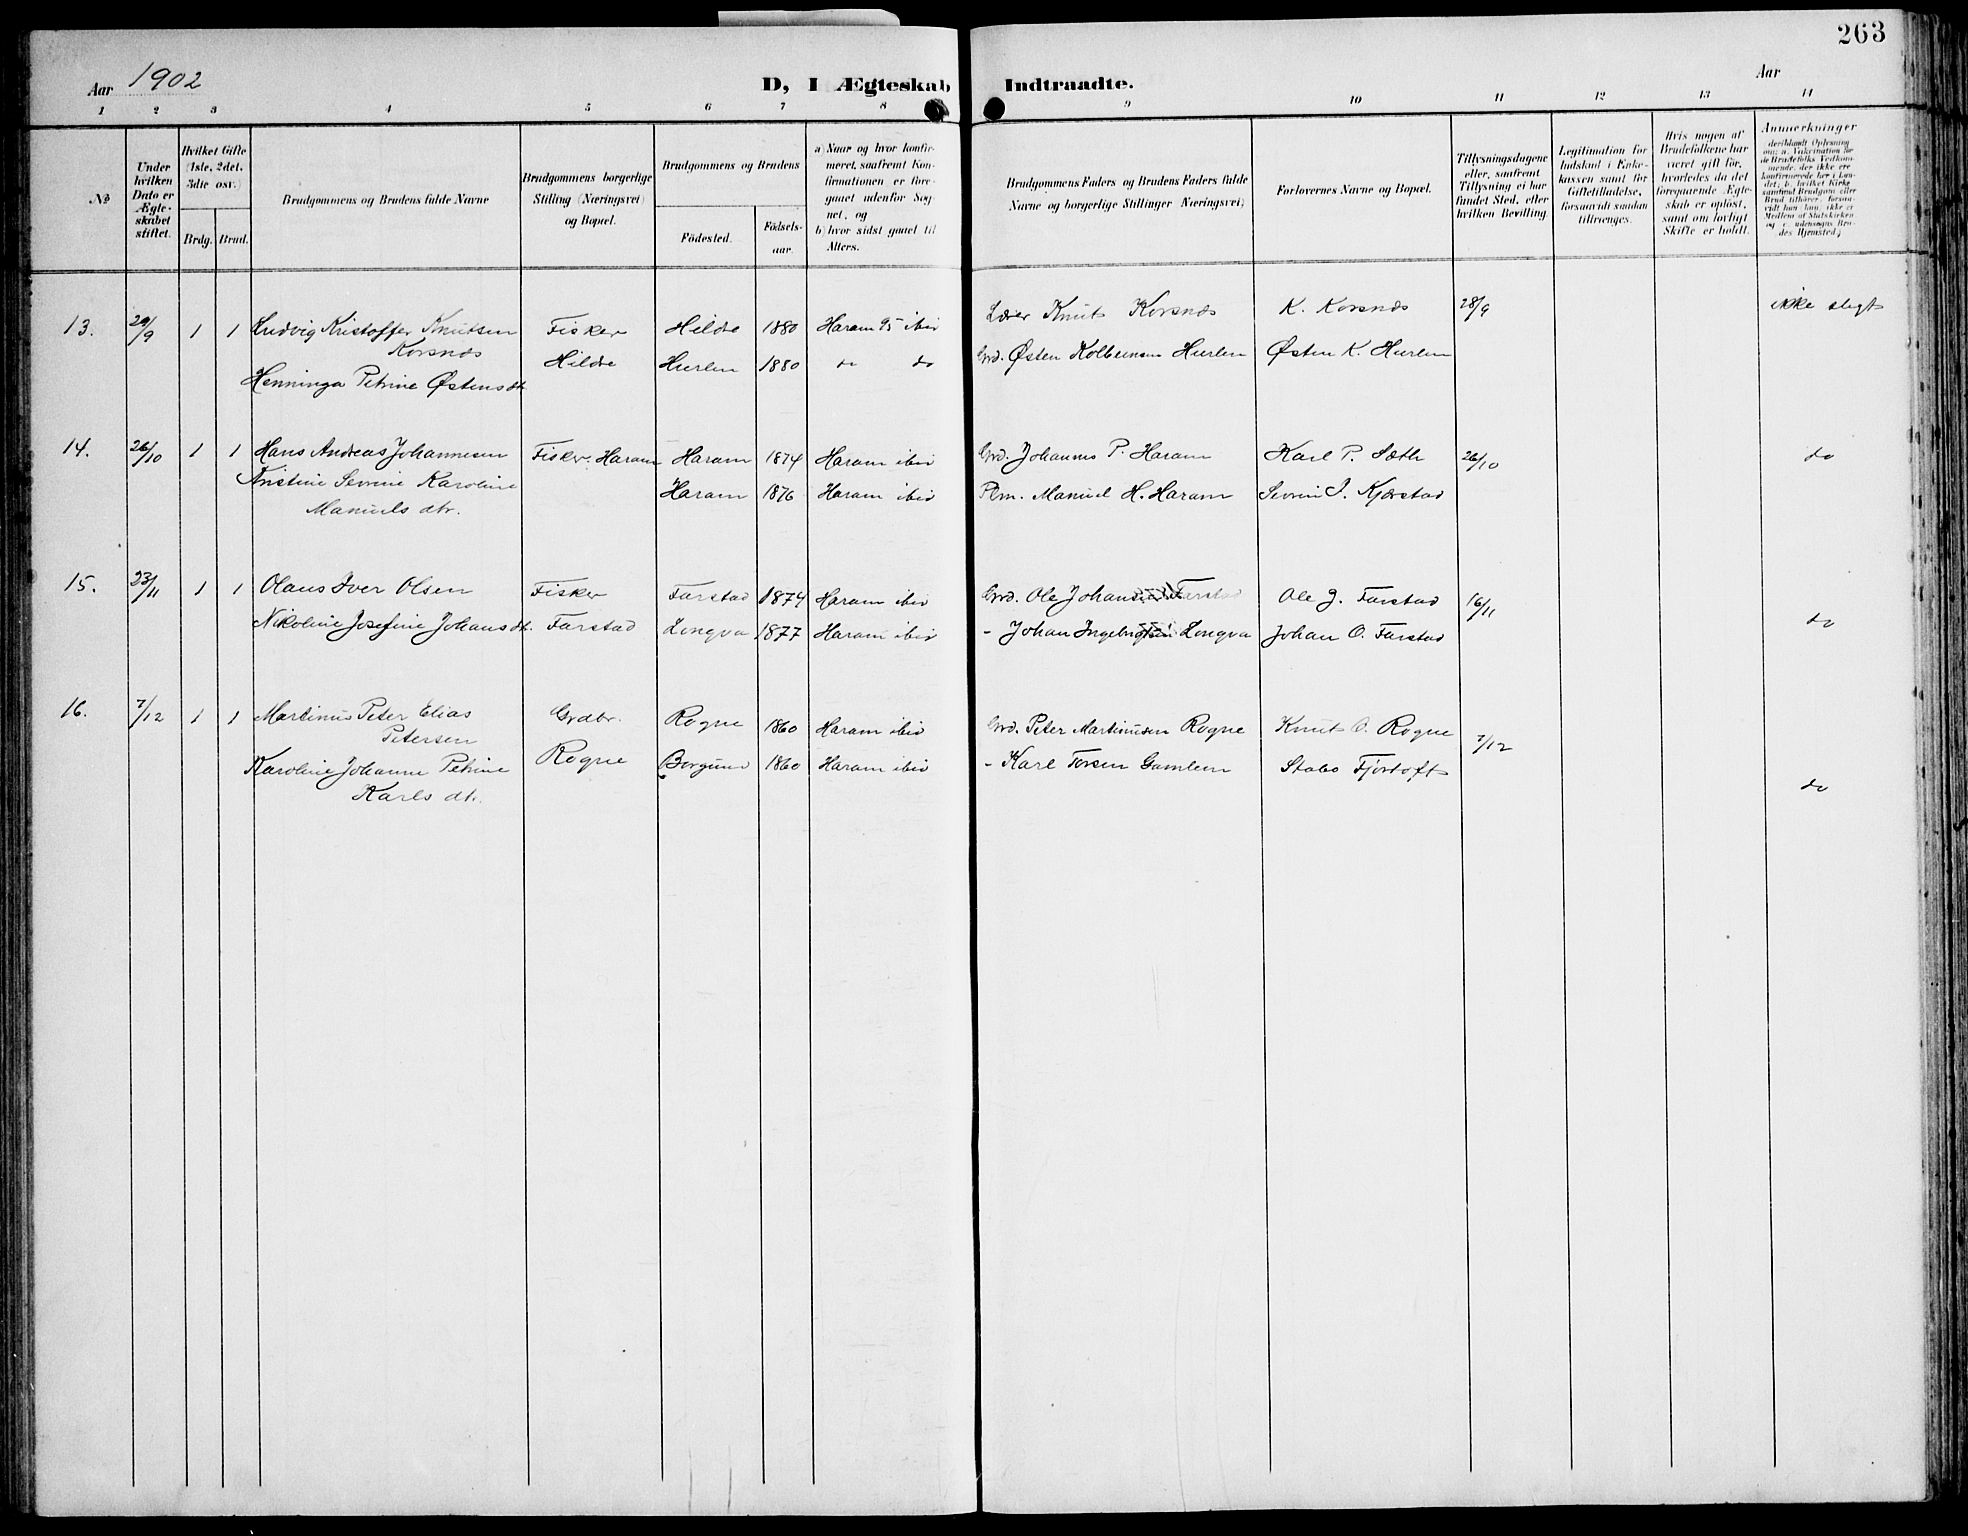 263
Aar 1902
D, I Ægteskab Indtraadte.
Aar
1 2 3 4 5 6 7 8 9 10 11 12 13 14
No
Under hvilken Dato er Ægteskabet stiftet.
Hvilket Gifte (1ste, 2det, 3die osv.)
Brdg. Brud.
Brudgommens og Brudens fulde Navne
Brudgommens borgerlige Stilling (Næringsvei) og Bopæl.
Brudgommens og Brudens
Födested.
Födselsaar.
a) Naar og hvor konfirmeret, saafremt Konfirmationen er foregaaet udenfor Sognet, og
b) hvor sidst gaaet til Alters.
Brudgommens Faders og Brudens Faders fulde Navne og borgerlige Stillinger Næringsvei)
Forlovernes Navne og Bopæl.
Tillysningsdagene eller, saafremt Tillysning ei har fundet Sted, efter hvilken Bevilling.
Legitimation for Indskud i Enkekassen samt for Giftetilladelse, forsaavidt saadan tiltrænges.
Hvis nogen af Brudefolkene har været gift för, hvorledes da det foregaaende Ægteskab er oplöst, samt om lovligt Skifte er holdt.
Anmerkninger
13. 29/9 1 1 Ludvig Kristoffer Knutsen Fisker Hildre 1880 Haram 95 ibid Lærer Knut Korsnes K. Korsnes 28/9 ikke slegt
Korsnes
Henninga Petrine Østensdt. Hildre Hurlen 1880 do do Grd. Østen Kolbeinsen Hurlen Østen K. Hurlen
14. 26/10 1 1 Hans Andreas Johannesen Fisker Haram Haram 1874 Haram ibid Grd. Johannes P. Haram Karl P. Sæth 26/10 do
Kristine Sevrine Karoline Haram 1876 Haram ibid Plm. Manuel H. Haram Sevrin I. Kjerstad
Manuels dtr.
15. 23/11 1 1 Olaus Iver Olsen Fisker Farstad 1874 Haram ibid Grd. Ole Johansen Farstad Ole J. Farstad 16/11 do
Nikoline Josefine Johansdt. Farstad Longva 1877 Haram ibid - Johan Ingebrigtsen Longva Johan O. Farstad
16. 7/12 1 1 Martinus Peter Elias Grdbr. Rogne 1860 Haram ibid Grd. Peter Martinusen Rogne Knut O. Rogne 7/12
Petersen
Karoline Johanne Petrine Rogne Borgund 1860 Haram ibid - Karl Torsen Gamlem Stabo Fjørtoft do
Karls dt.